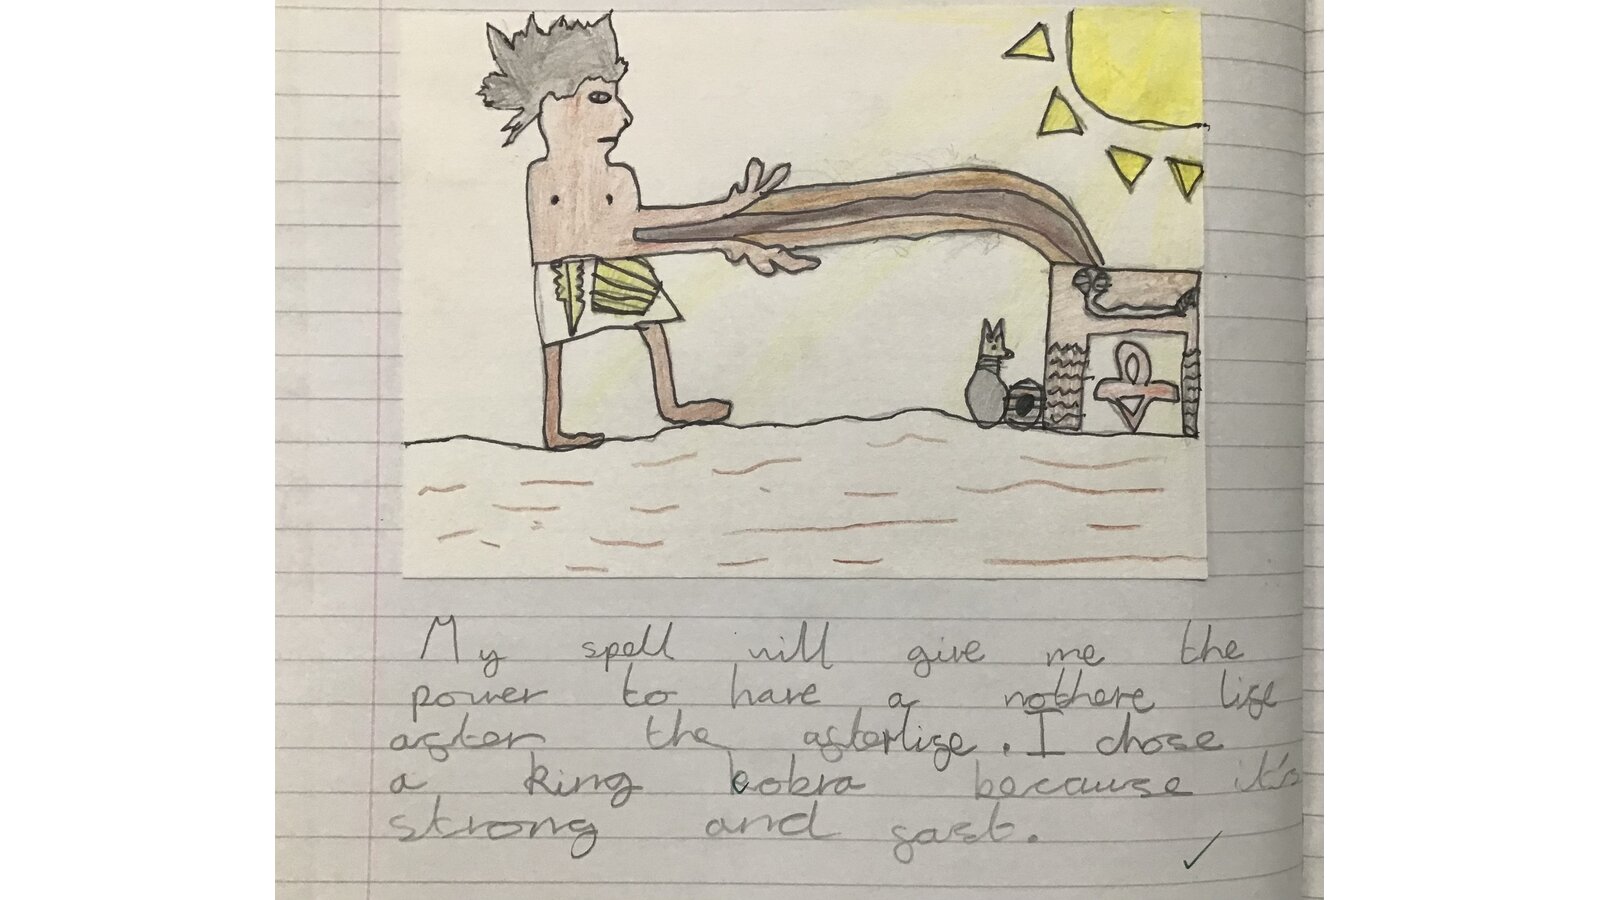 My spell will give me the
power to have a nothere life
after the afterlife. I chose
a king kobra because it's
strong and fast.